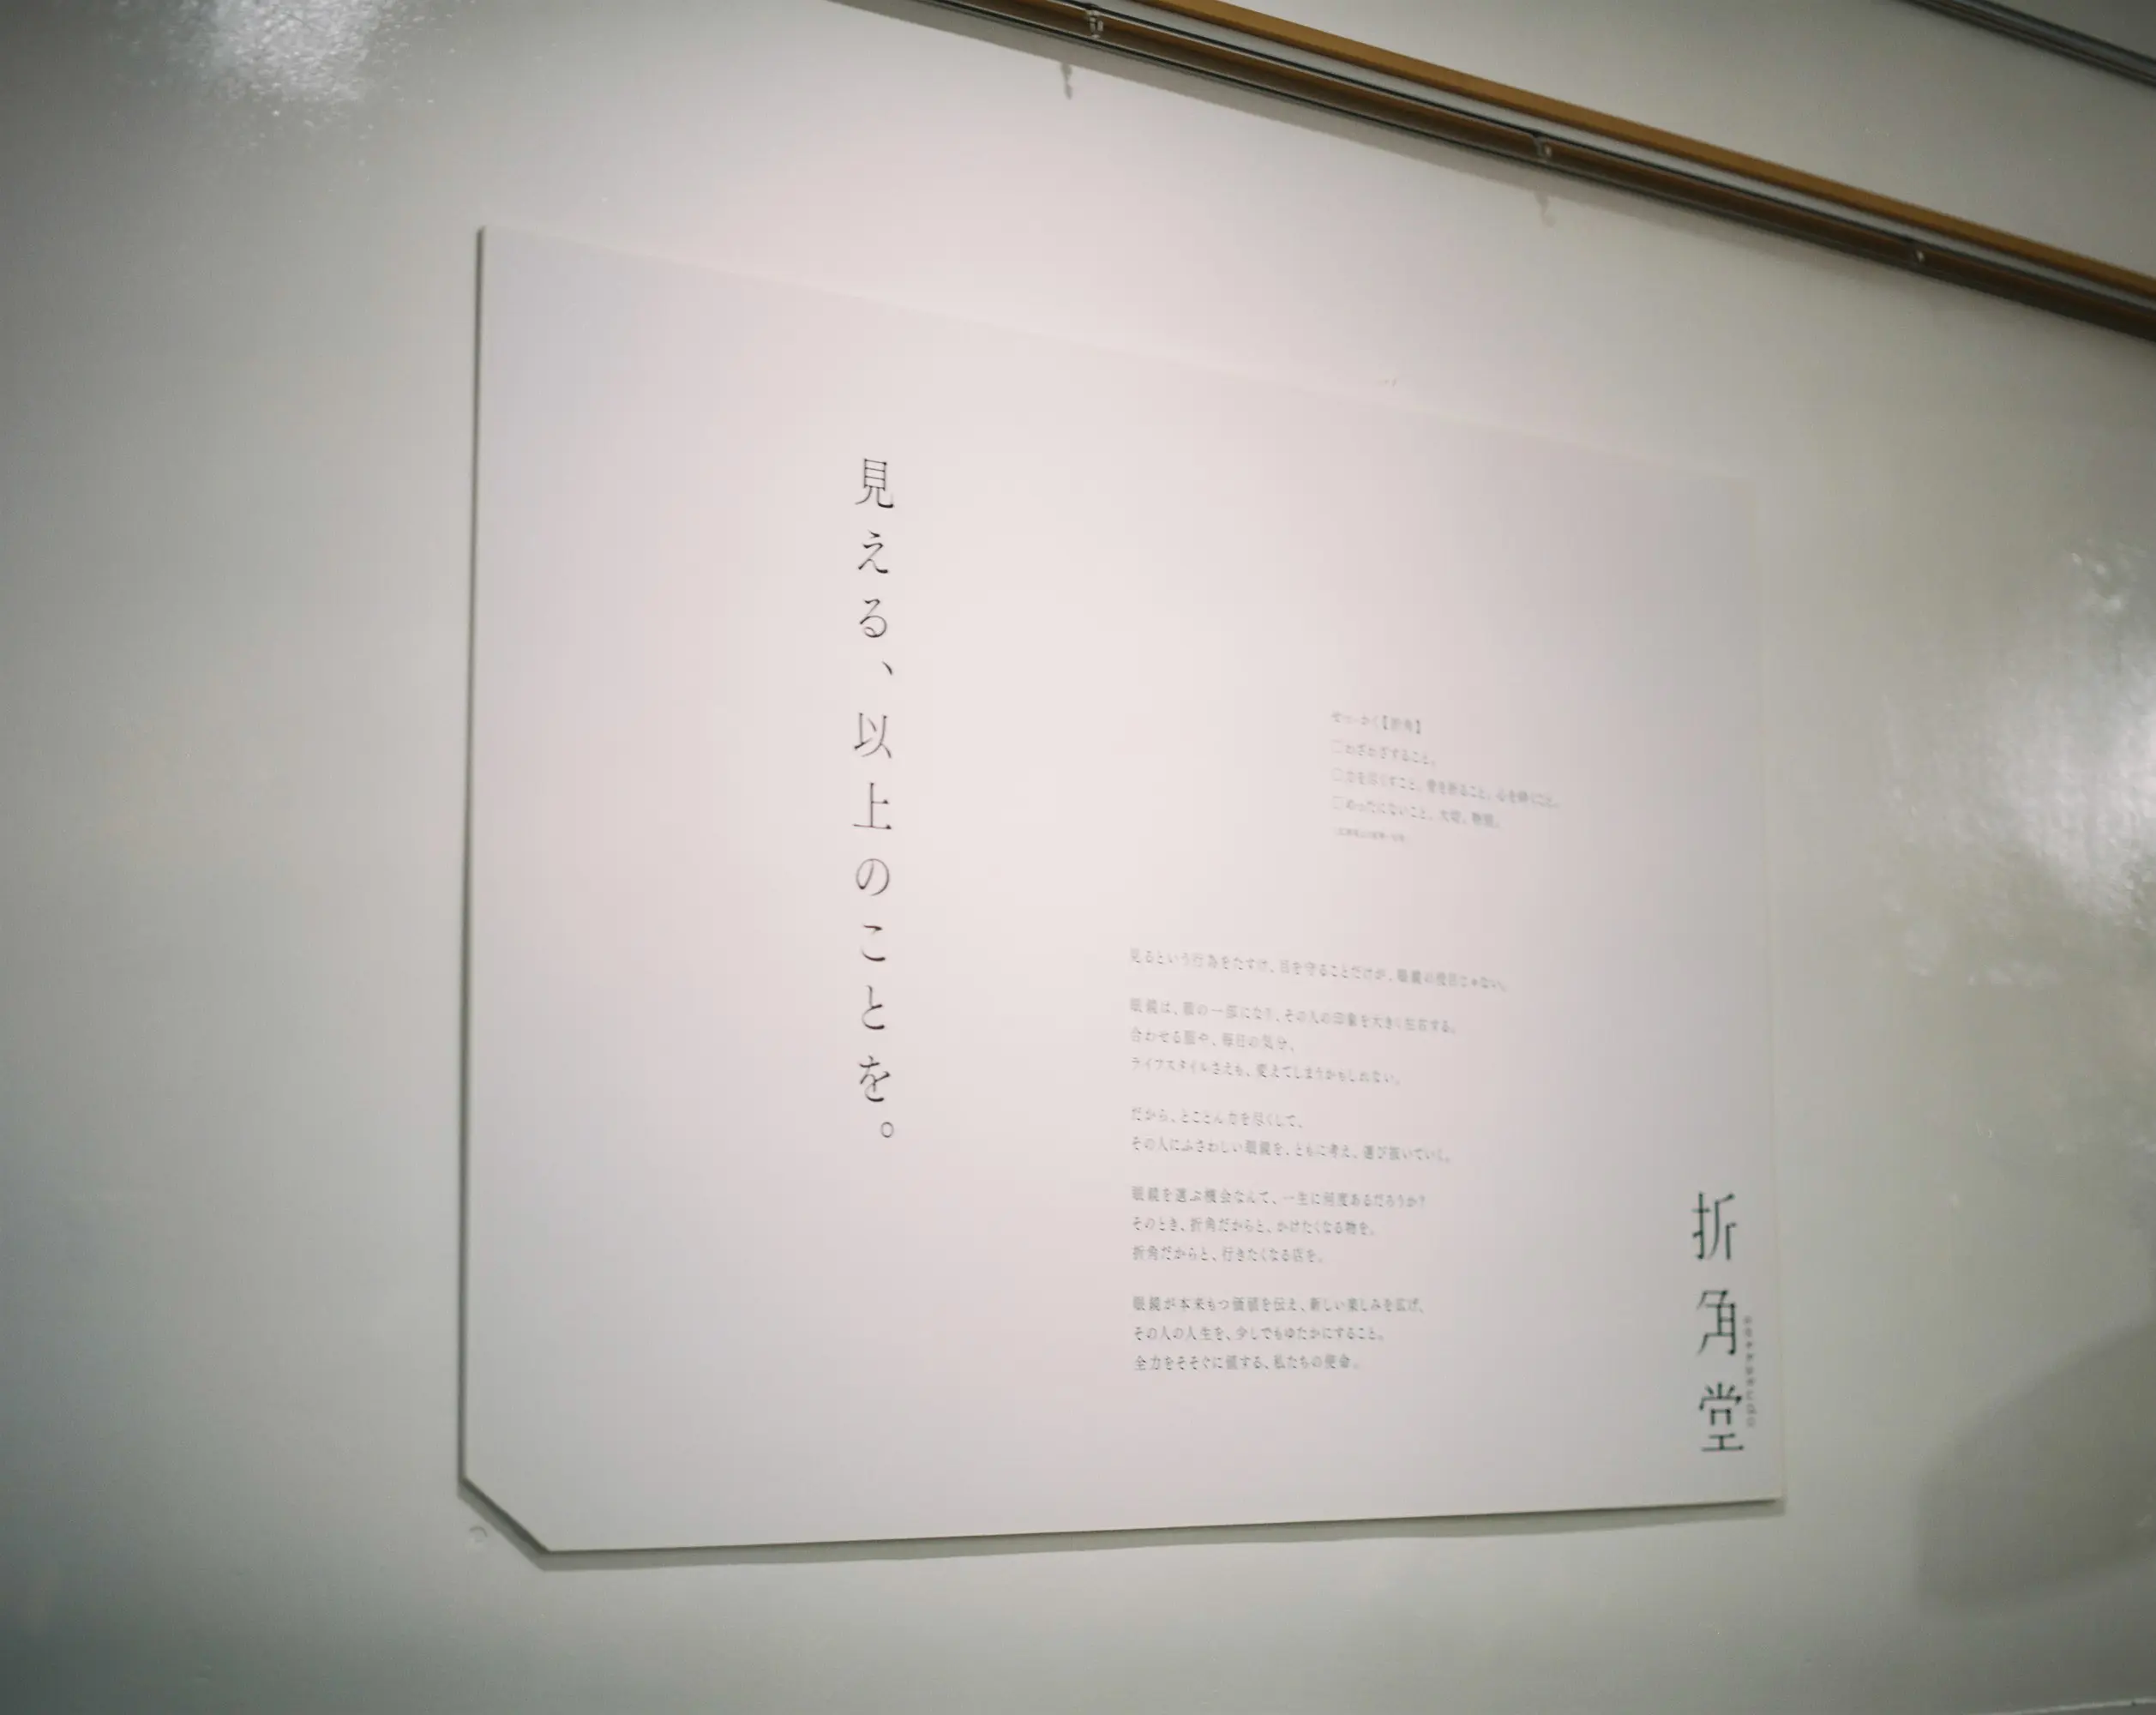 見える、以上のことを。
せっかく【折角】
わざわざすること。
力を尽くすこと。骨を折ること。心を砕くこと。
めったにないこと。大切。特別。
見るという行為をたすけ、目を守ることだけが、眼鏡の役目じゃない。
眼鏡は、顔の一部になり、その人の印象を大きく左右する。
合わせる服や、毎日の気分、
ライフスタイルさえも、変えてしまうかもしれない。
だから、とことん力を尽くして、
その人にふさわしい眼鏡を、ともに考え、選び抜いていく。
眼鏡を選ぶ機会なんて、一生に何度あるだろうか？
そのとき、折角だからと、かけたくなる物を。
折角だからと、行きたくなる店を。
眼鏡が本来もつ価値を伝え、新しい楽しみを広げ、
その人の人生を、少しでもゆたかにすること。
全力をそそぐに値する、私たちの使命。
折角堂